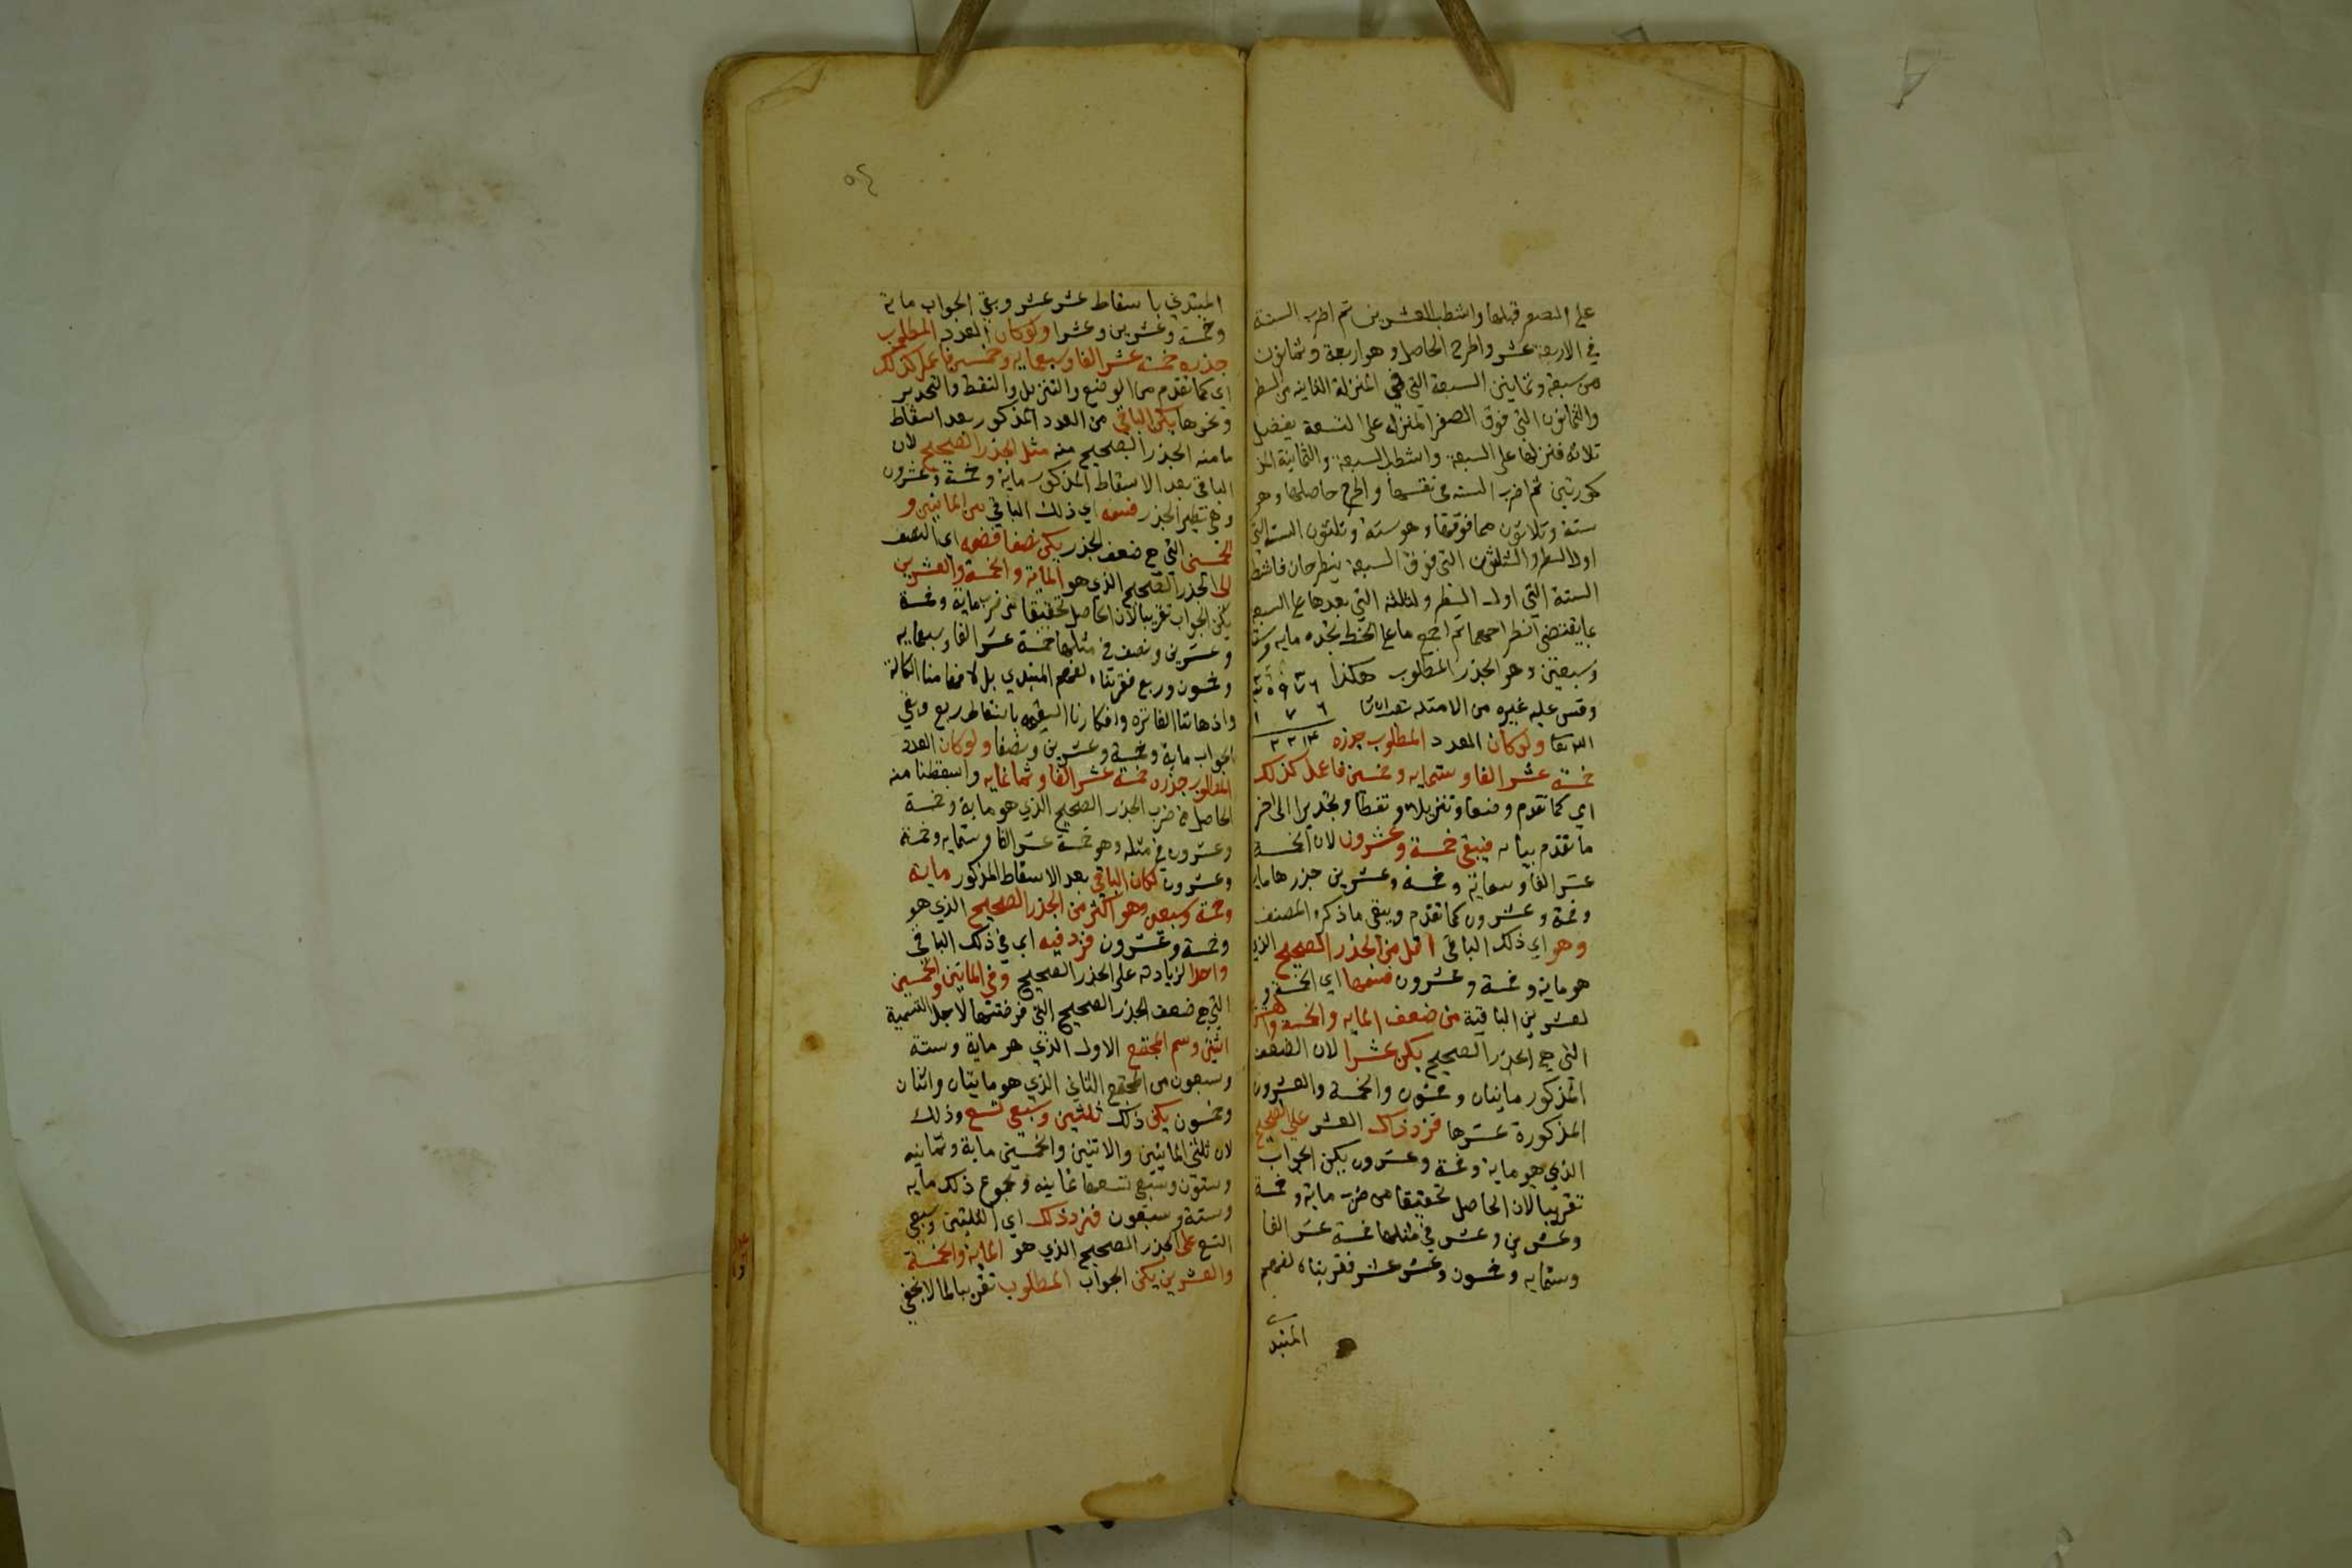 على الصفر قبلها واشطب العشرين ثم اضرب الستة
في الاربعة عشر واطرح الحاصل وهو اربعة وثمانون
من سبعة وثمانين السبعة التي في المنزلة الثانية من السطر
والثمانون التي فوق الصفر المنزلة على التسعة يفضل
ثلاثة فنزلها على السبعة واشطب السبعة والثمانية المذ
كورتين ثم اضرب الستة في نفسها واطرح حاصلها وهو
ستة وثلاثون مما فوقها وهو ستة وثلثون الستة التي
اول السطر والثلثون التي فوق السبعة ينطرحان فاشطب
الستة التي اول السطر والثلثة التي بعدها على السبعة
ثم اجمع ما على الخط تجده ماية وستة
وسبعين وهو الجذر المطلوب هكذا
وقس عليه غيره من الامثلة
١ ٧ ٦
ولو كان العدد المطلوب جذره
خمسة عشر الفا وستماية وخمسين فاعمل كذلك
اي كما تقدم وضعا وتنزيلا ونقطا وتحديرا الى اخر
ما تقدم بيانه فيبقى خمسة وعشرون لان الخمسة
عشر الفا وستماية وخمسة وعشرين جذرها ماية
وخمسة وعشرون كما تقدم ويبقى ما ذكره المصنف
وهو اي ذلك الباقي اقل من الجذر الصحيح الذي
هو ماية وخمسة وعشرون فسمها اي الخمسة و
لعشرين الباقية من ضعف الماية والخمسة والعشرين
التي هي الجذر الصحيح يكن عشرا لان الضعف
المذكور مايتان وخمسون والخمسة والعشرون
المذكورة عشرها فزد ذلك العشر على الصحيح
الذي هو ماية وخمسة وعشرون يكن الجواب
تقريبا لان الحاصل تحقيقا من ضرب ماية وخمسة
وعشرين وعشر في مثلها خمسة عشر الفا
وستماية وخمسون وعشر عشر فقربناه لفهم
المبتد
المبتدي باسقاط عشر عشر وبقي الجواب ماية
وخمسة وعشرين وعشرا ولو كان العدد المطلوب
جذره خمسة عشر الفا وسبعماية وخمسين فاعمل كذلك
اي كما تقدم من الوضع والتنزيل والنقط والتحدير
ونحوها يكن الباقي من العدد المذكور بعد اسقاط
ما منه الجذر الصحيح منه مثل الجذر الصحيح لان
الباقي بعد الاسقاط المذكور ماية وخمسة وعشرون
وهي نظير الجذر فسمه اي ذلك الباقي من المائتين و
الخمسين التي هي ضعف الجذر يكن نصفا فضعه اي النصف
الى الجذر الصحيح الذي هو الماية والخمسة والعشرين
يكن الجواب تقريبا لان الحاصل تحقيقا من ضرب ماية وخمسة
وعشرين ونصف في مثلها خمسة عشر الفا وسبعماية
وخمسون وربع فقربناه لفهم المبتدي بل لافهامنا الكالة
واذهاننا الفاترة وافكارنا السقيمة باسقاط ربع وبقي
الجواب ماية وخمسة وعشرين ونصفا ولو كان العدد
المطلوب جذره خمسة عشر الفا وثمانماية واسقطنا منه
الحاصل من ضرب الجذر الصحيح الذي هو ماية وخمسة
وعشرون في مثله وهو خمسة عشر الفا وستماية وخمسة
وعشرون لكان الباقي بعد الاسقاط المذكور ماية
وخمسة وسبعين وهو اكثر من الجذر الصحيح الذي هو
وخمسة وعشرون فزد فيه اي في ذلك الباقي
واحدا لزيادته على الجذر الصحيح وفي المايتين والخمسين
التي هي ضعف الجذر الصحيح التي فرضتها لاجل التسمية
اثنين وسم المجتمع الاول الذي هو ماية وستة
وسبعون من المجتمع الثاني الذي هو مايتان واثنان
وخمسون يكن ذلك ثلثين وسبعي تسع وذلك
لان ثلثي المائتين والاثنين والخمسين ماية وثمانية
وستون وسبعي تسعها ثمانية ومجموع ذلك ماية
وستة وسبعون فزد ذلك اي الثلثين وسبعي
التسع على الجذر الصحيح الذي هو الماية والخمسة
والعشرين يكن الجواب المطلوب تقريبا لما لا يخفى